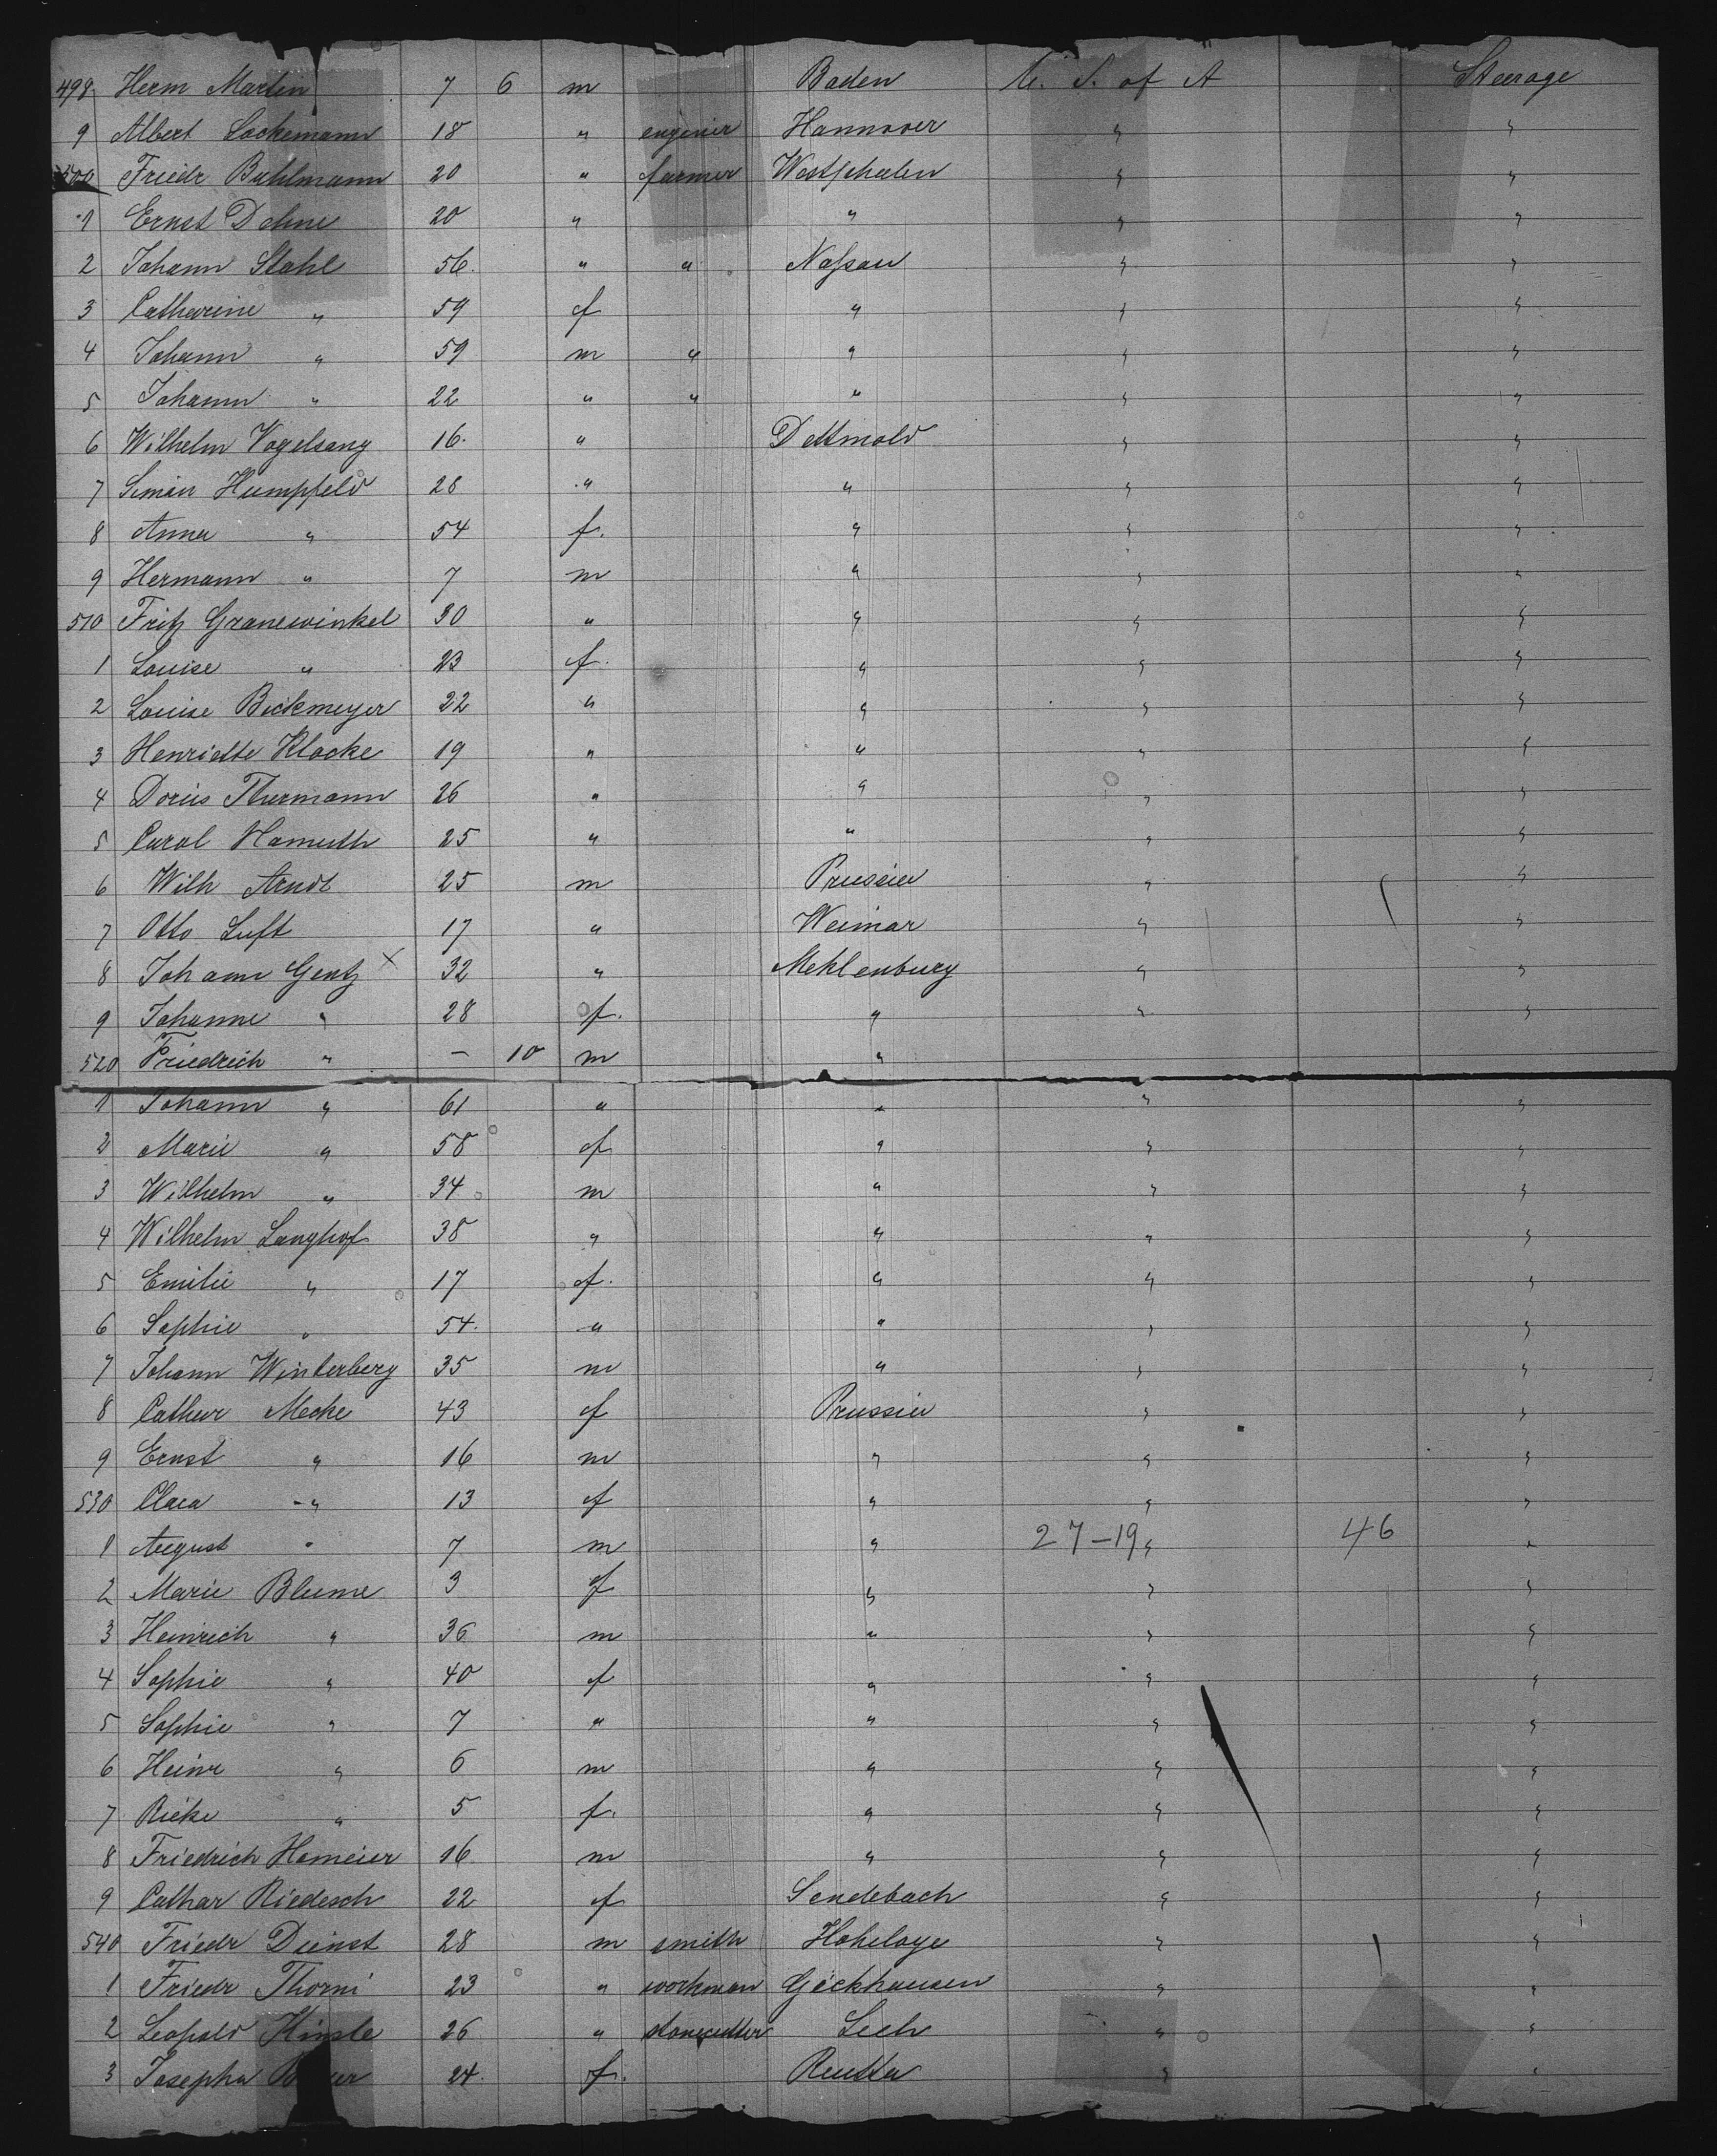 498 Herm Martin 7 6 m Baden U. S. of A Steerage
9 Albert Lockemann 18 " engenier Hannover " "
500 Friedr Buhlmann 20 " farmer Westphalen " "
1 Ernst Dehne 20 " " " "
2 Johann Stahl 56. " " Naſsau " "
3 Catharine " 59 f " " "
4 Johann " 59 m " " " "
5 Johann " 22 " " " " "
6 Wilhelm Vogelsang 16. " Dettmold " "
7 Simon Humpfeld 28 " " " "
8 Anna " 54 f. " " "
9 Hermann " 7 m " " "
510 Fritz Granewinkel 30 " " " "
1 Louise " 23 f. " " "
2 Louise Bickmeyer 22 " " " "
3 Henriette Klocke 19 " " " "
4 Doris Thurmann 26 " " " "
5 Carol Hamuth 25 " " " "
6 Wilh Arndt 25 m Prussia " "
7 Otto Luft 17 " Weimar " "
8 Johann Gentz x 32 " Meklenburg " "
9 Johanne " 28 f. " " "
520 Friedrich " – 10 m "
1 Johann " 61 " " " "
2 Marie " 58 f " " "
3 Wilhelm " 34 m " " "
4 Wilhelm Langhof 38 " " " "
5 Emilie " 17 f. " " "
6 Sophie " 54. " " " "
7 Johann Winterberg 35 m " " "
8 Cathar Meche 43 f Prussia " "
9 Ernst " 16 m " " "
530 Clara " 13 f " " "
1 August " 7 m " 27–19 " 46 "
2 Marie Blume 3 f " " "
3 Heinrich " 36 m " " "
4 Sophie " 40 f " " "
5 Sophie " 7 " " " "
6 Heinr " 6 m " " "
7 Rieke " 5 f. " " "
8 Friedrich Homeier 16 m " " "
9 Cathar Riedesch 22 f Sendebach " "
540 Friedr Dienst 28 m smith Hoheloye " "
1 Friedr Thorni 23 " workman Gëckhausen " "
2 Leopold 26 " stonecutter Lech " "
3 Josepha 24. f. Reutta " "